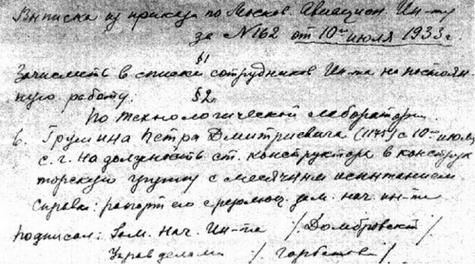 Выписка из приказа по Москов. Авиацион. Ин-ту
за №162 от 10го июля 1933 г.
§1
Зачислить в списки сотрудников Ин-та на постоян-
ную работу.
§2
По технологической лаборатории
6. Грушина Петра Дмитриевича с 10го июля
с. г. на должность ст. конструктора в конструк
торскую группу с месячным испытанием
Справка: рапорт его с резолюц. зам. нач. ин-та
Подписал: Зам. Нач. Ин-та /Домбровский/
Управделами /Горбатова/